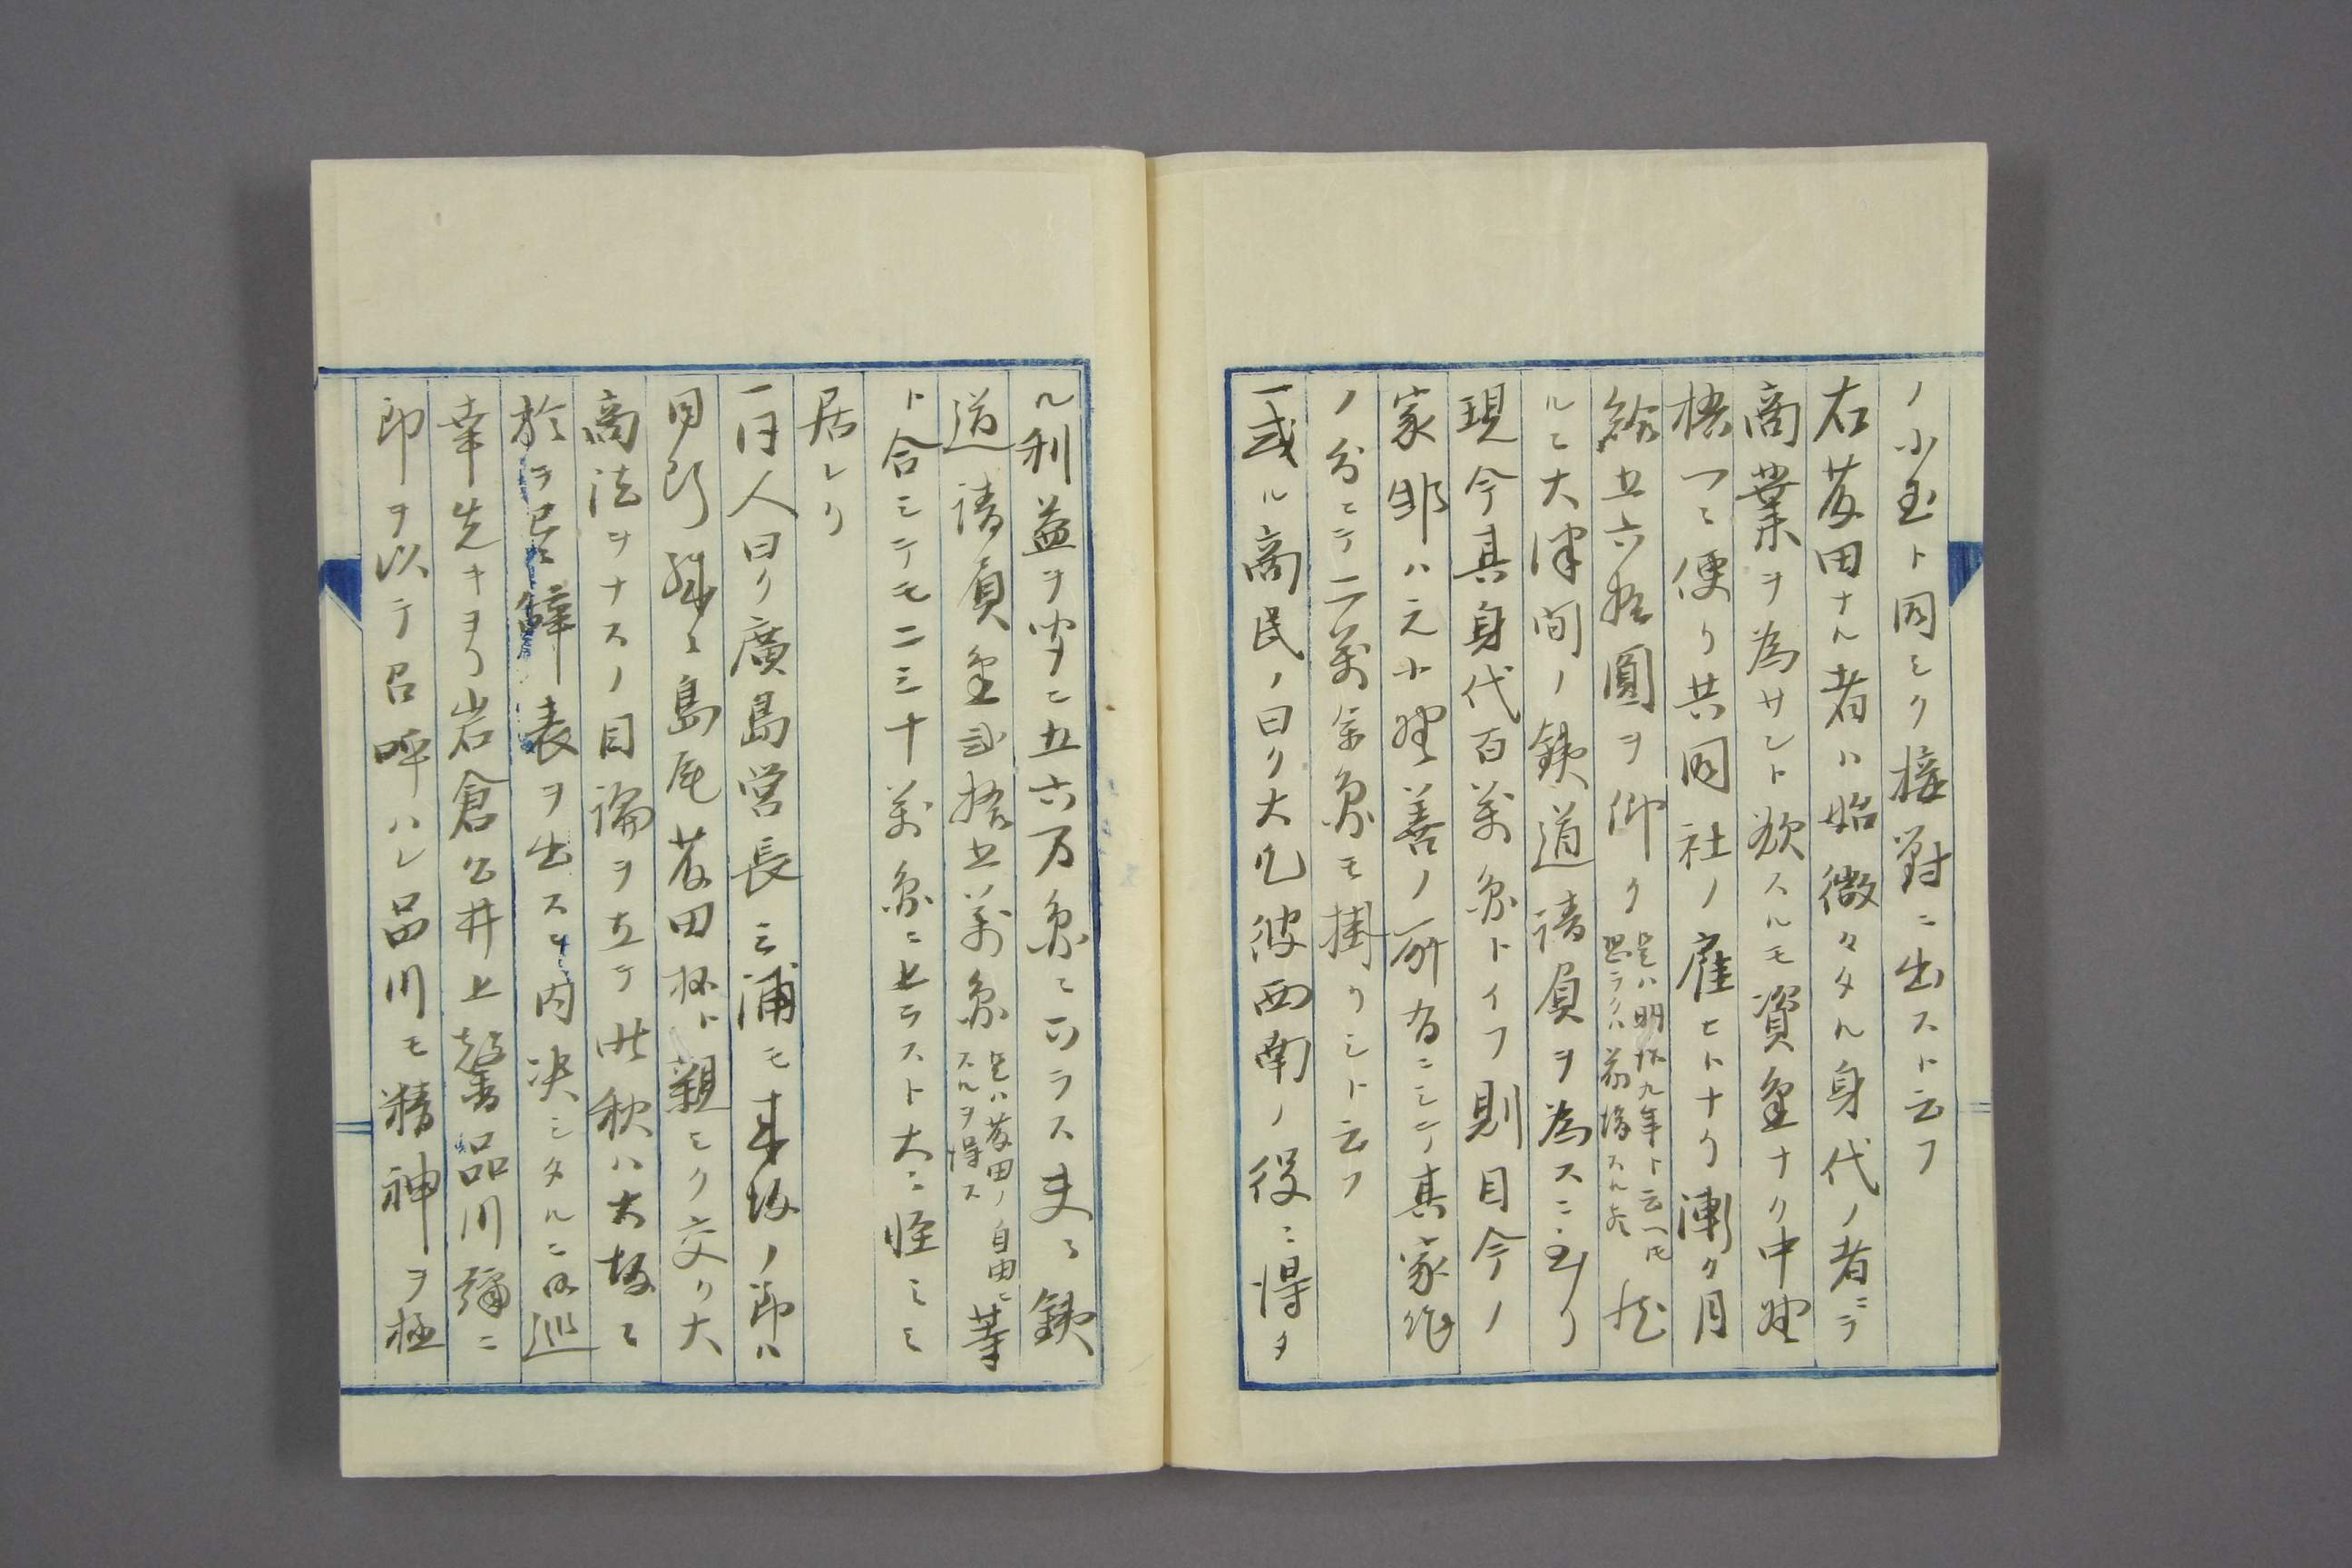 ノ小玉ト同シク接對ニ出スト云フ
右藤田ナル者ハ始微々タル身代ノ者ニテ
商業ヲ為サント欲スルモ資金ナク中野
梧一ニ便リ共同社ノ雇ヒトナリ漸ク月
給五六拾圓ヲ仰ク
是ハ明治九年ト云ヘ氏
恐ラクハ前後スル
ルニ大津間ノ鉄道請負ヲ為スニ至リ
現今其身代百萬円トイフ則目今ノ
家邸ハ元小野善ノ所有ニシテ其家作
ノ分ニテ二萬余円モ掛リシト云フ
一或ル商民ノ曰ク大凡彼西南ノ役ニ得タ
ル利益ヲ聞クニ五六万円ニ下ラス夫ニ鉄
道請負金貳拾五萬円
是ハ藤田ノ自由ニ
スルヲ得ス
等
ト合シテモ二三十萬円ニ止ラスト大ニ怪シミ
居レリ
一同人曰ク廣島営長三浦モ来坂ノ節ハ
同所縣令島尾藤田杯ト親シク交リ大
商法ヲナスノ目論ヲ立テ此秋ハ大坂ニ
於テ辞表ヲ出スヤ内決シタルニ御巡
幸先キヨリ岩倉公井上馨品川彌ニ
郎ヲ以テ召呼ハレ品川モ精神ヲ極